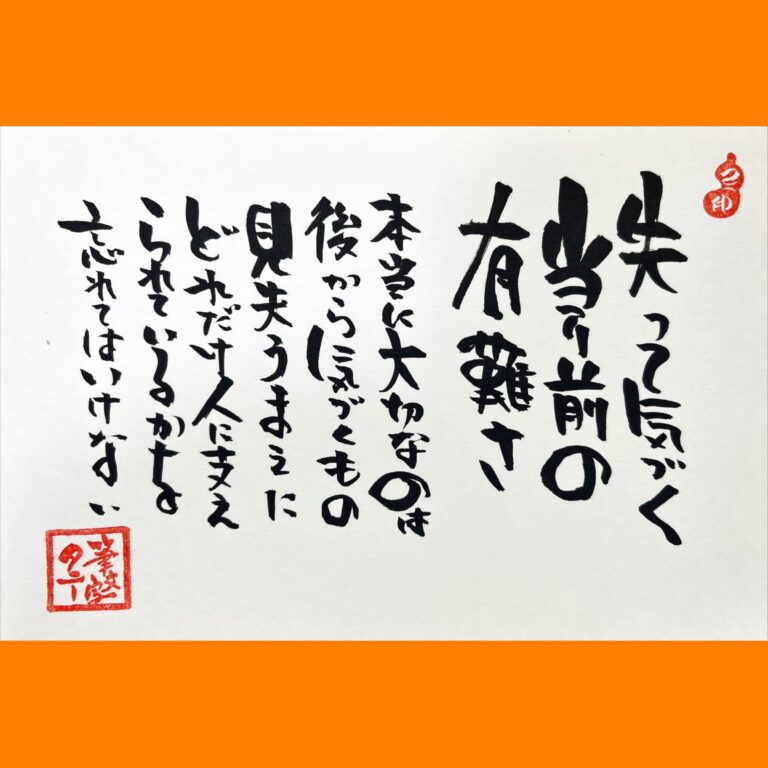 失って気づく
当り前の
有難さ
本当に大切なのは
後から気づくもの
見失うまえに
どれだけ人に支え
られているかを
忘れてはいけない